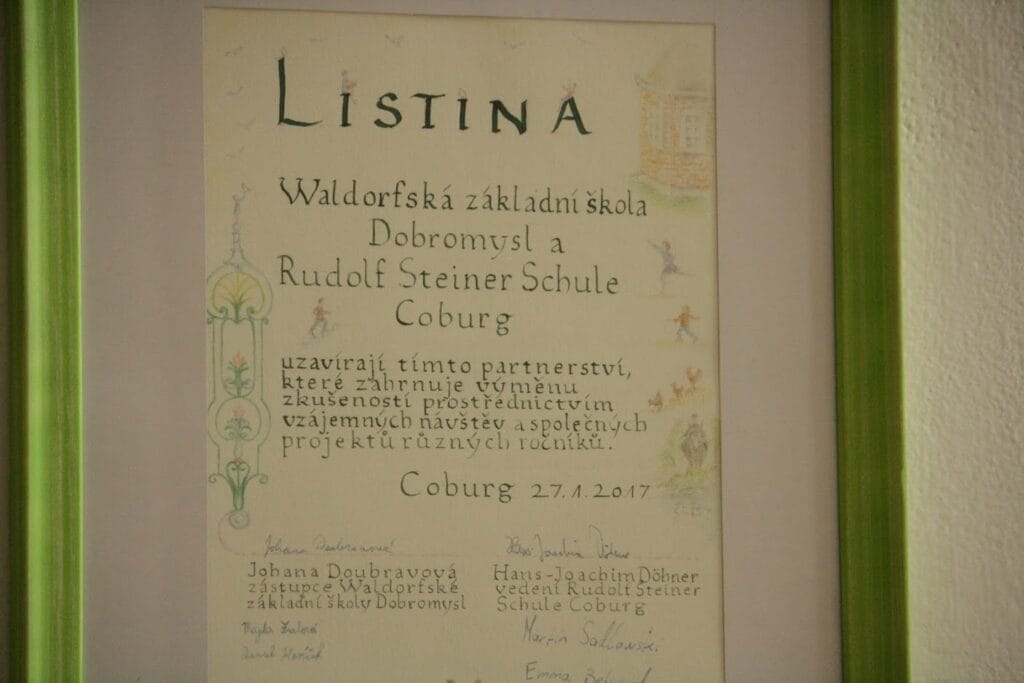 LISTINA
Waldorfská základní škola
Dobromysl a
Rudolf Steiner Schule
Coburg
uzavírají tímto partnerství,
které zahrnuje výměnu
zkušeností prostřednictvím
vzájemných návštěv a společných
projektů různých ročníků.
Coburg 27.1.2017
Johana Doubravová
Hans-Joachim Döhner
Johana Doubravová
zástupce Waldorfské
základní školy Dobromysl
Hans-Joachim Döhner
vedení Rudolf Steiner
Schule Coburg
Emma